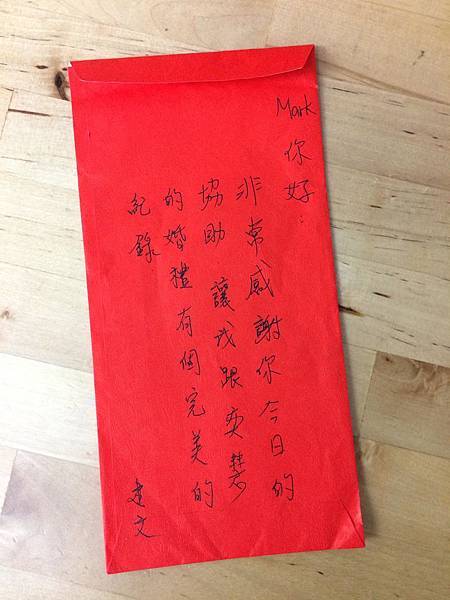 Mark 你好:
非常感謝你今日的
協助 讓我跟奕慧
的婚禮有個完美的
紀錄
建文